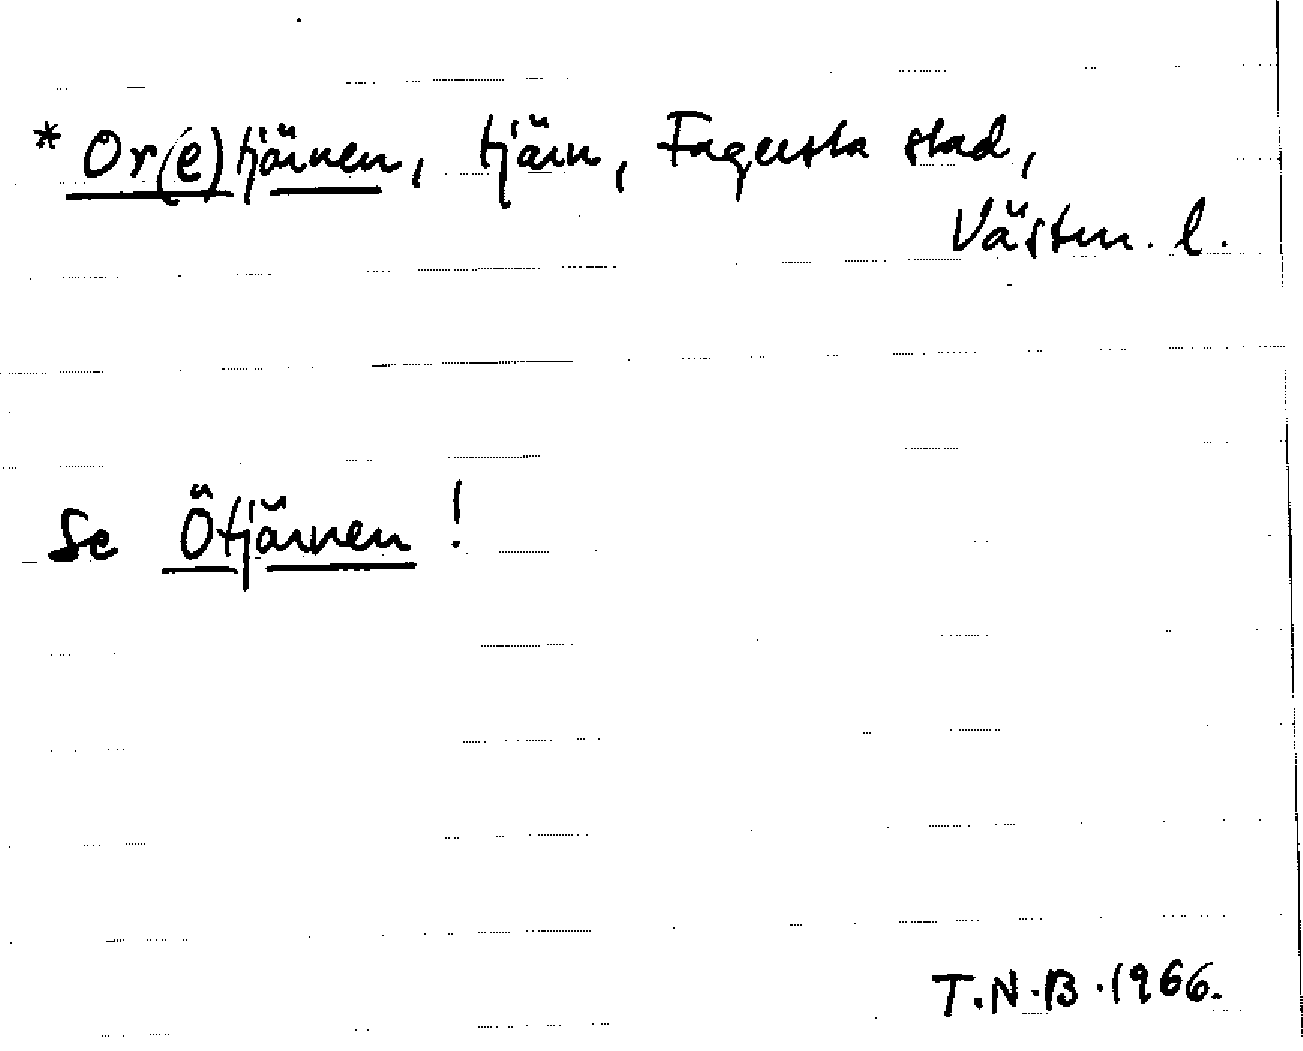 * Or(e)tjärnen, tjärn, Fagersta stad,
Västm. l.
Se Ötjärnen !
T.N.B. 1966.